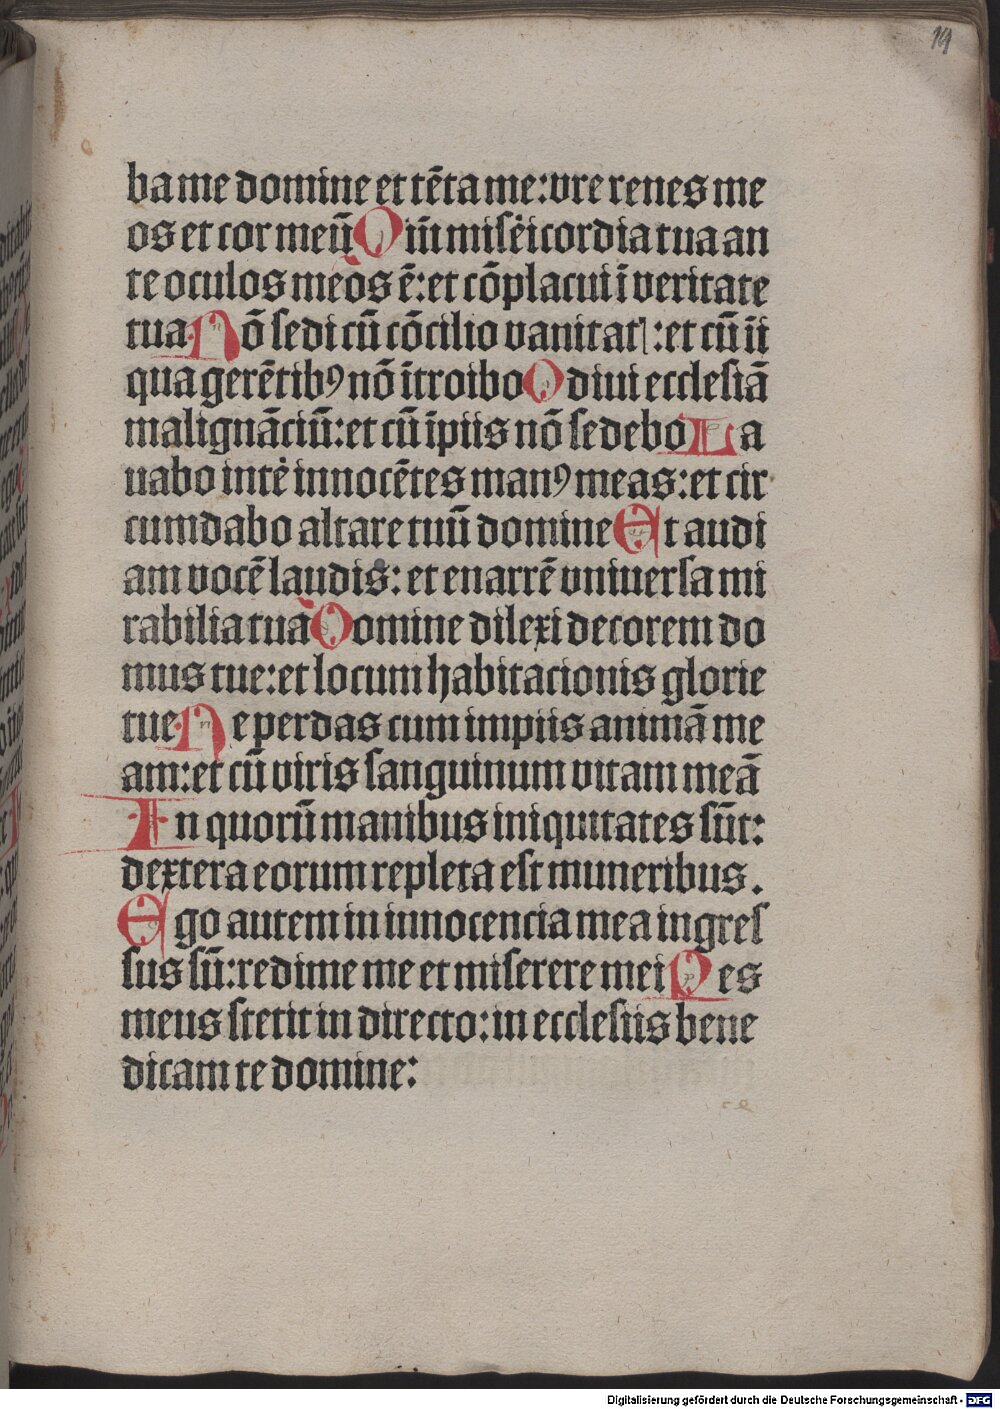 14
ba me domine et tēta me: vre renes me
os et cor meū Qm̄ mis̄icordia tua an
te oculos meos ē: et cōplacui ī veritate
tua Nō sedi cū cōcilio vanitatꝭ: et cū iī
qua gerētibꝰ nō ītroibo Odiui ecclesiā
malignāciū: et cū īpiis nō sedebo La
uabo inte᷑ innocētes manꝰ meas: et cir
cumdabo altare tuū domine Et audi
am vocē laudis: et enarrē vniuersa mi
rabilia tua Domine dilexi decorem do
mus tue: et locum habitacionis glorie
tue Ne perdas cum impiis animā me
am: et cū viris sanguinum vitam meā
In quorū manibus iniquitates sūt:
dextera eorum repleta est muneribus.
Ego autem in innocencia mea ingres
sus sū: redime me et miserere mei Pes
meus stetit in directo: in ecclesiis bene
dicam te domine:
Digitalisierung gefördert durch die Deutsche Forschungsgemeinschaft - DFG